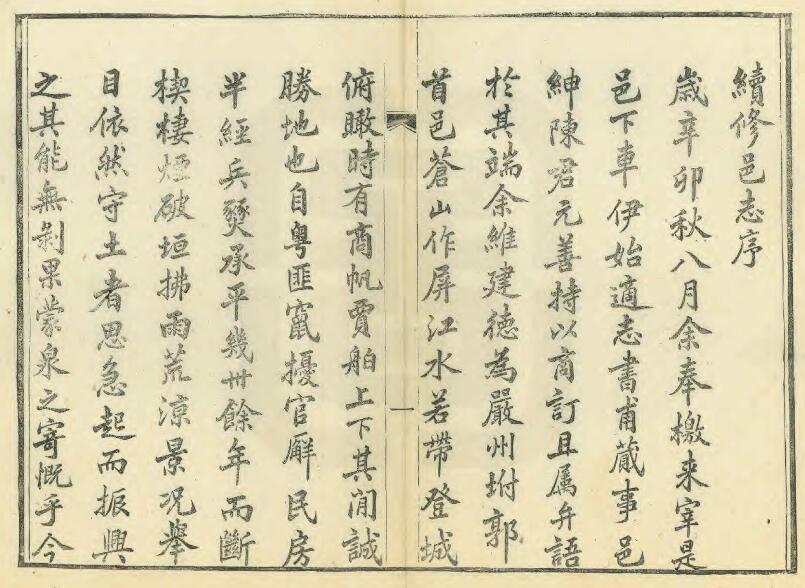 續修邑志序
歲辛卯秋八月余奉檄来宰是
邑下車伊始適志書甫蕆事邑
紳陳君元善持以商訂且属弁語
於其端余維建德為嚴州坿郭
首邑蒼山作屏江水若帶登城
俯瞰時有商帆賈舶上下其閒誠
勝地也自粤匪竄擾官廨民房
半經兵燹承平幾卅餘年而斷
楔棲煙破垣拂雨荒涼景况舉
目依然守土者思急起而振興
之其能無剝果蒙泉之寄慨乎今
一